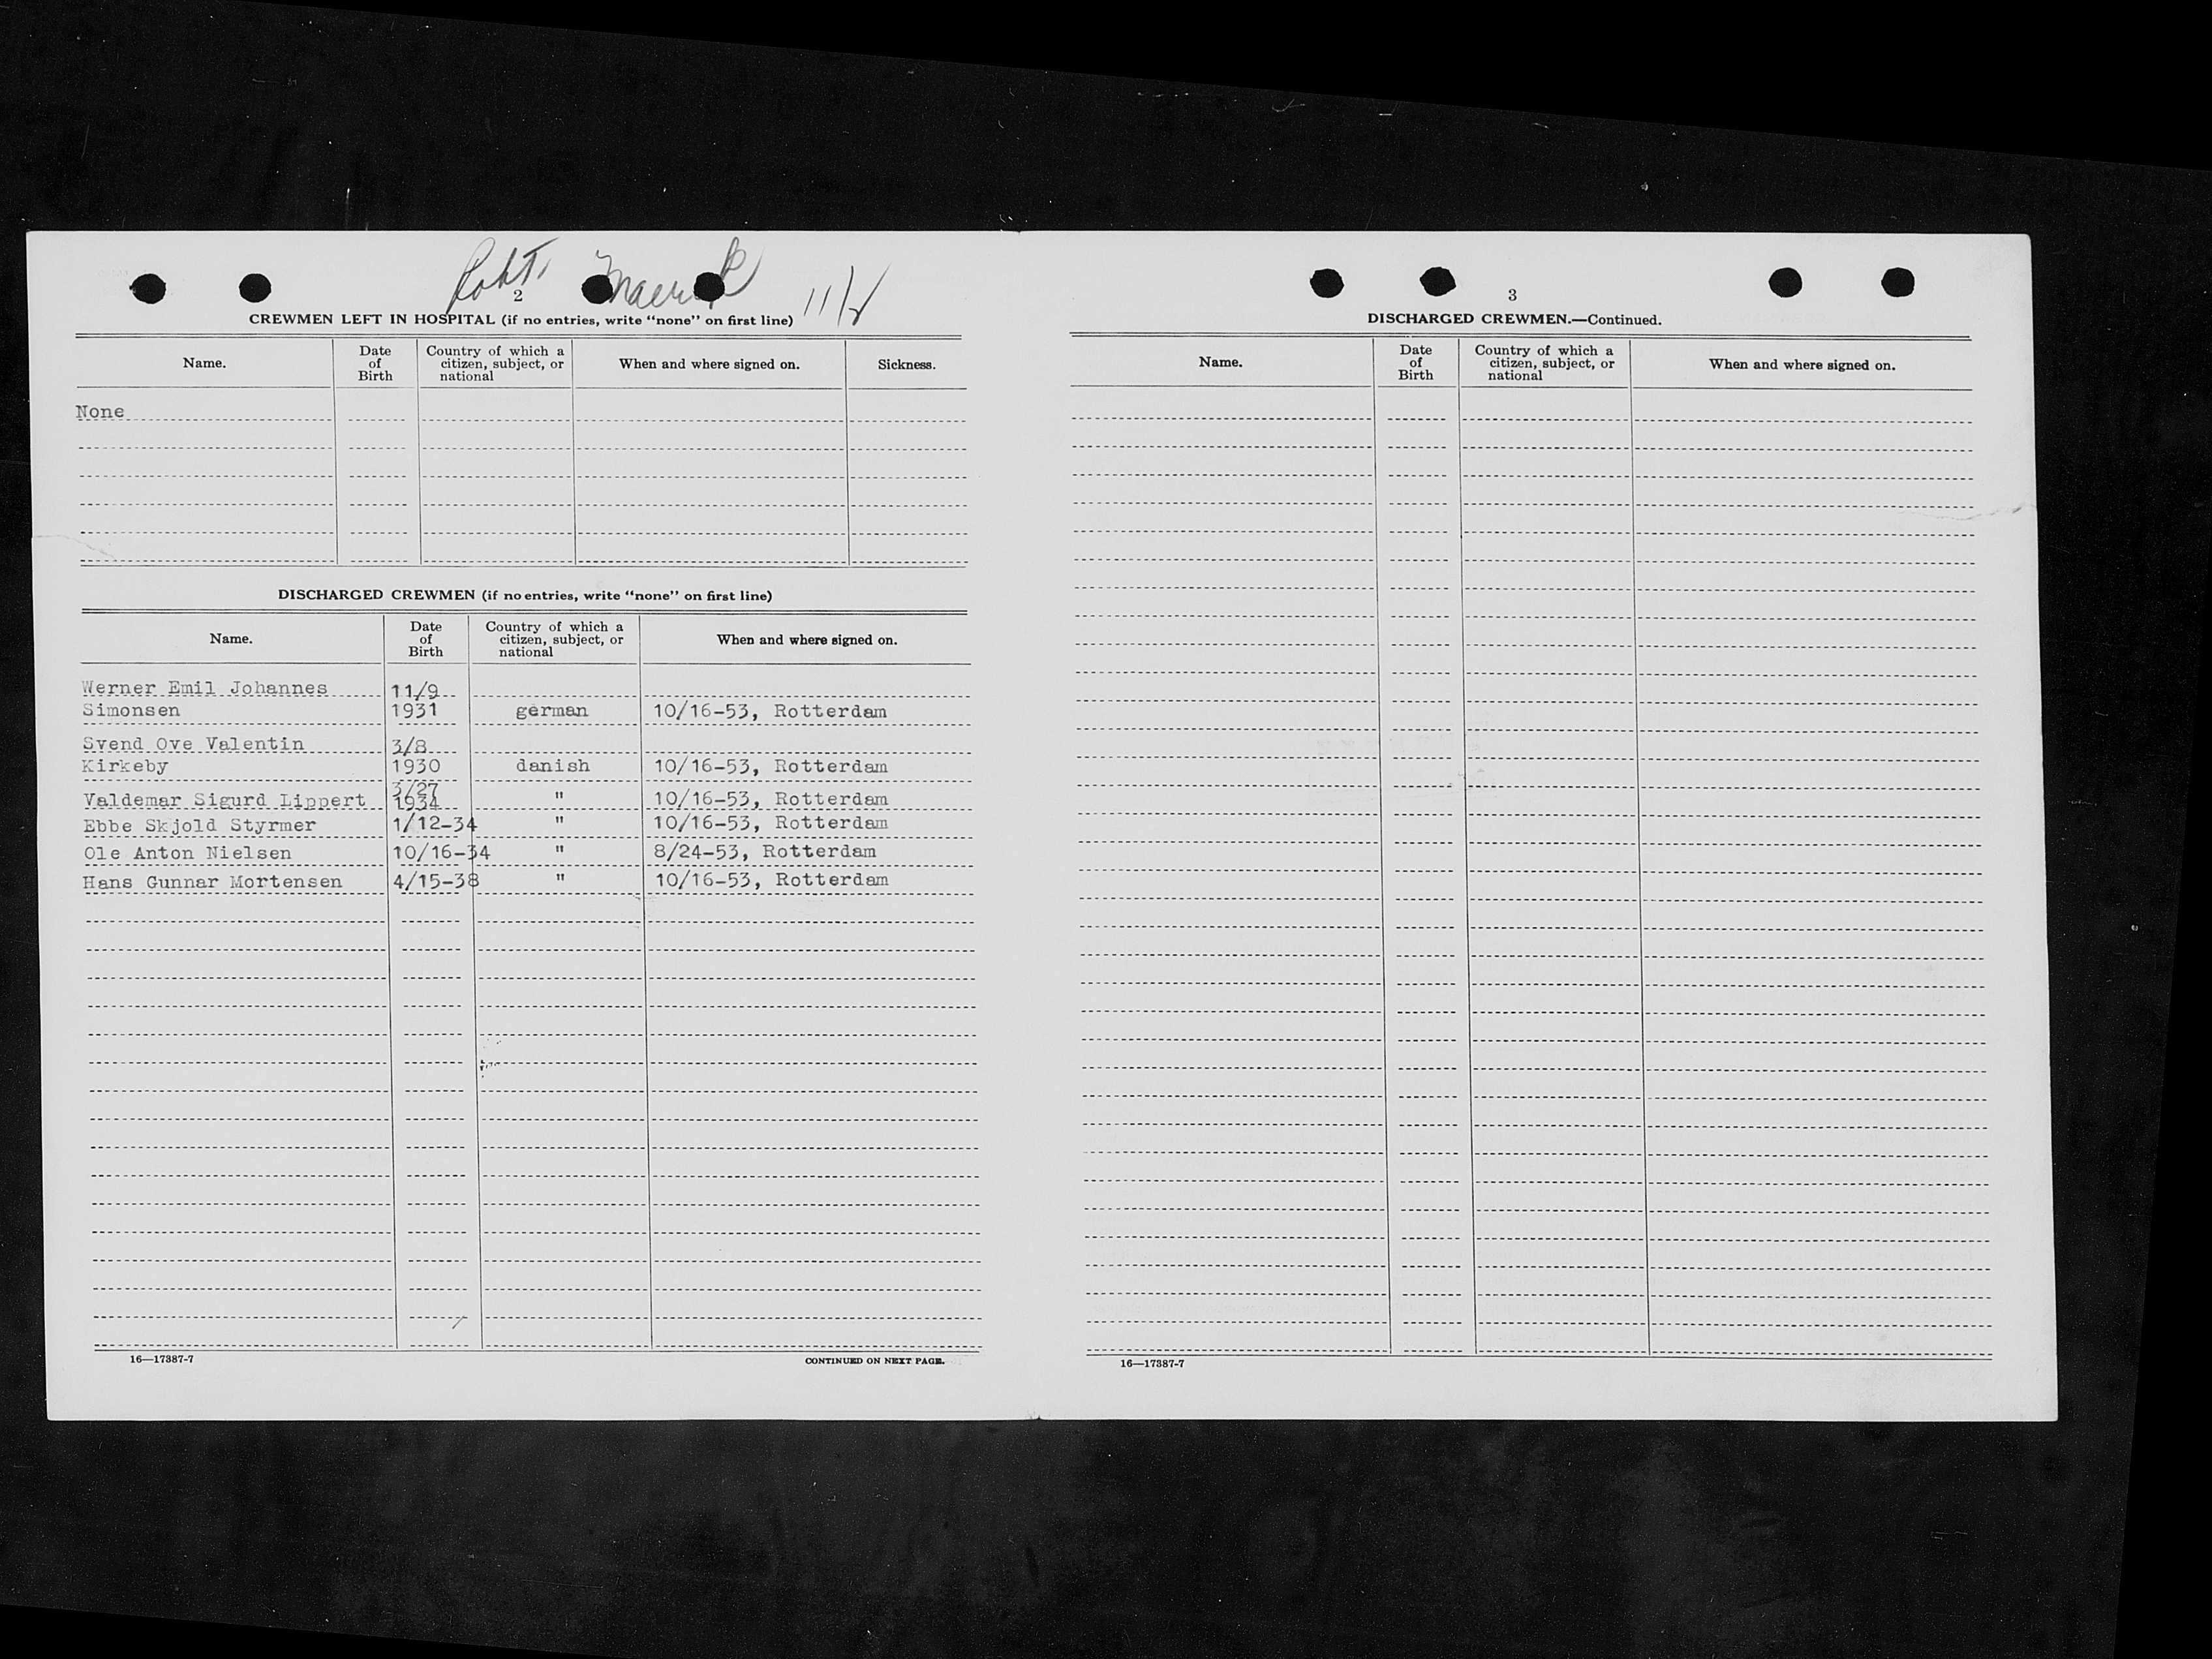 Robt. Maersk 11/2
2
CREWMEN LEFT IN HOSPITAL (if no entries, write “none” on first line)
Name. Date of Birth Country of which a citizen, subject, or national When and where signed on. Sickness.
None
DISCHARGED CREWMEN (if no entries, write “none” on first line)
Name. Date of Birth Country of which a citizen, subject, or national When and where signed on.
Werner Emil Johannes 11/9
Simonsen 1931 german 10/16-53, Rotterdam
Svend Ove Valentin 3/8
Kirkeby 1930 danish 10/16-53, Rotterdam
3/27
Valdemar Sigurd Lippert 1934 " 10/16-53, Rotterdam
Ebbe Skjold Styrmer 1/12-34 " 10/16-53, Rotterdam
Ole Anton Nielsen 10/16-34 " 8/24-53, Rotterdam
Hans Gunnar Mortensen 4/15-38 " 10/16-53, Rotterdam
16—17387-7 CONTINUED ON NEXT PAGE.
3
DISCHARGED CREWMEN.—Continued.
Name. Date of Birth Country of which a citizen, subject, or national When and where signed on.
16—17387-7